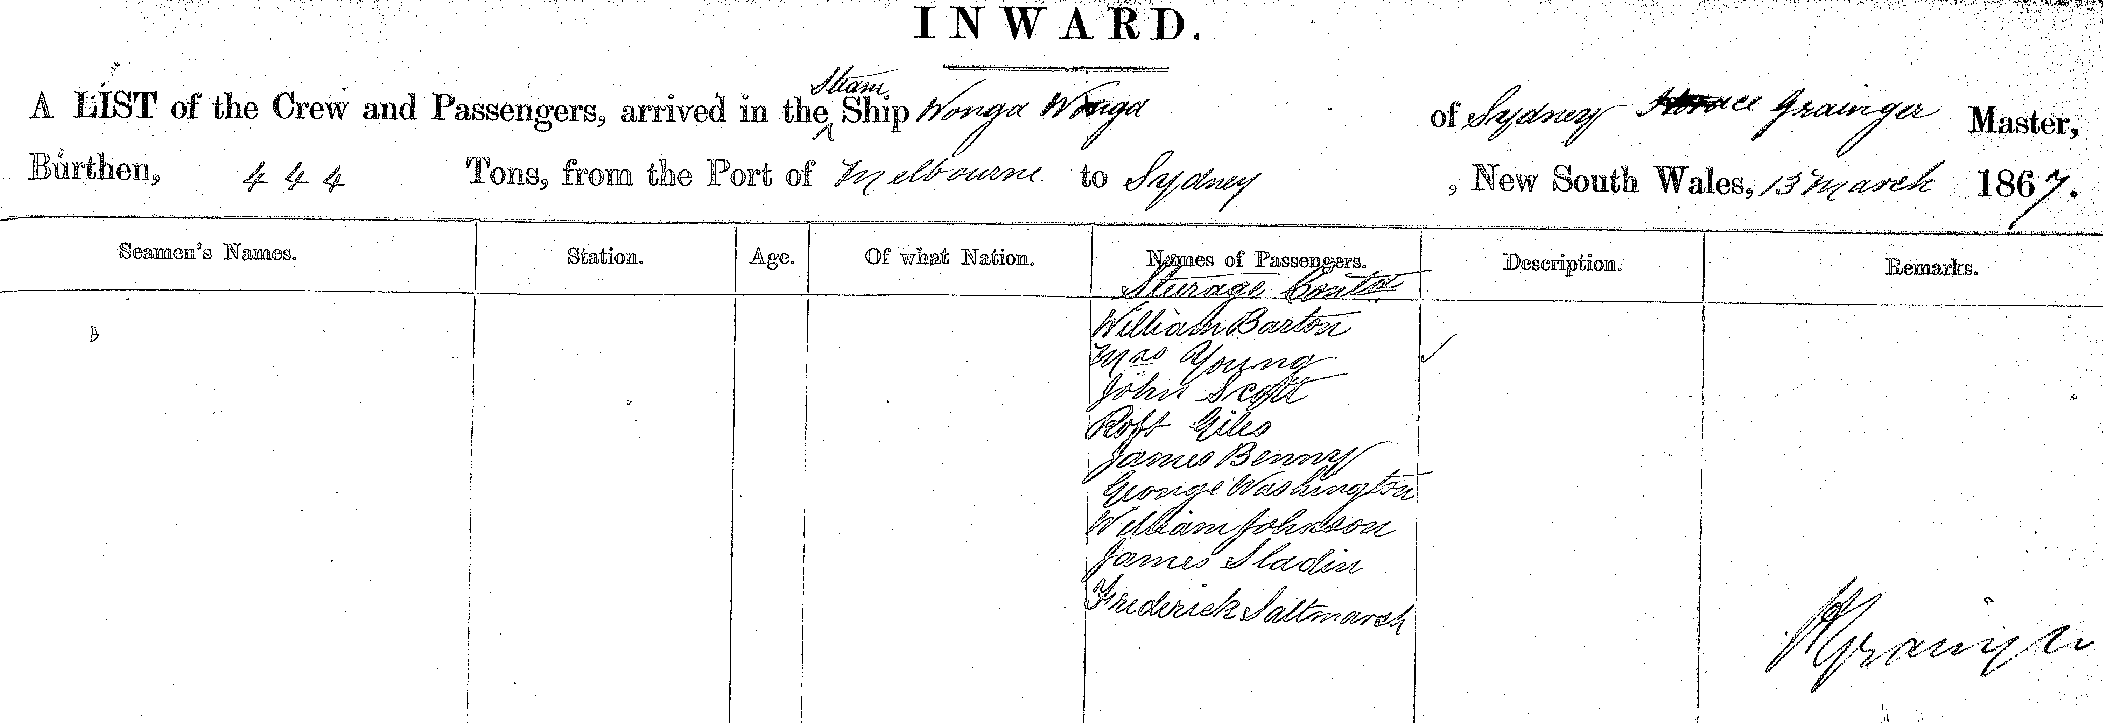 INWARD.
A LIST of the Crew and Passengers, arrived in the Steam Ship Wonga Wonga of Sydney Horace Grainger Master,
Burthen, 444 Tons, from the Port of Melbourne to Sydney, New South Wales, 13 March 1867.
Seamen's Names. Station. Age. Of what Nation. Names of Passengers. Description. Remarks.
Steerage Contd
William Barton
Mrs Young ✓
John Scott
Robt Giles
James Benny
George Washington
William Johnson
James Sladin
Frederick Saltmarsh
HGrainger